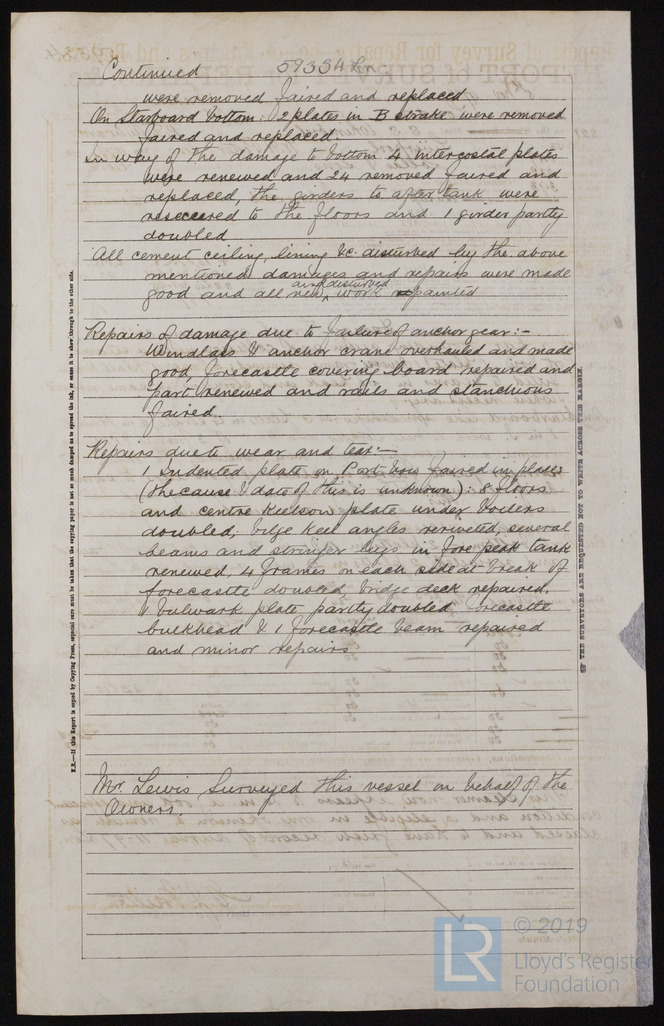 Continued 59334 Lon
were removed faired and replaced
On Starboard bottom: 2 plates in B strake were removed
faired and replaced
In way of the damage to bottom 4 intercostal plates
were renewed and 24 removed faired and
replaced, the girders to after tank were
resecured to the floors and 1 girder partly
doubled
All cement ceiling, lining &c. disturbed by the above
mentioned damages and repairs were made
good and all new and disturbed work repainted
Repairs of damage due to failure of anchor gear:-
Windlass & anchor crane overhauled and made
good, forecastle covering board repaired and
part renewed and rails and stanchions
faired.
Repairs due to wear and tear:-
1 Indented plate on Port bow faired in place
(the cause & date of this is unknown): 8 floors
and centre keelson plate under boilers
doubled, bilge keel angles reriveted, several
beams and stringer lugs in fore peak tank
renewed, 4 frames on each side at break of
forecastle doubled, bridge deck repaired,
1 bulwark plate partly doubled, forecastle
bulkhead & 1 forecastle beam repaired
and minor repairs
Mr. Lewis Surveyed this vessel on behalf of the
Owners.
N.B.—If this Report is copied by Copying Press, especial care must be taken that the copying paper is not so much damped as to spread the ink, or cause it to show through to the other side.
THE SURVEYORS ARE REQUESTED NOT TO WRITE ACROSS THIS MARGIN.
© 2019
LR
Lloyd's Register
Foundation